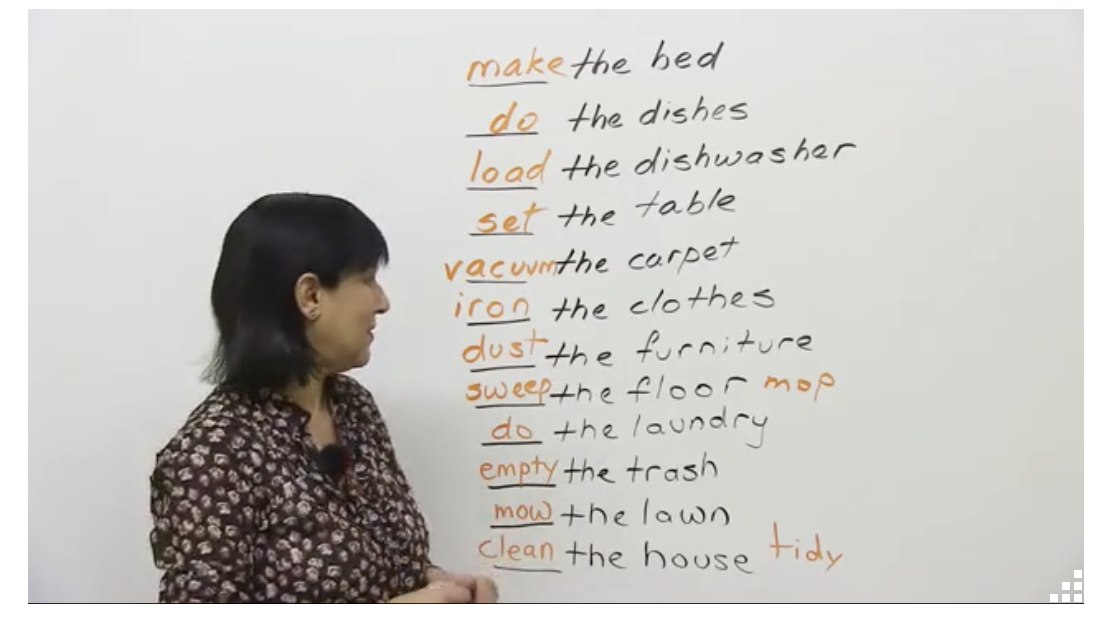 make the bed
do the dishes
load the dishwasher
set the table
vacuum the carpet
iron the clothes
dust the furniture
sweep the floor mop
do the laundry
empty the trash
mow the lawn
clean the house tidy